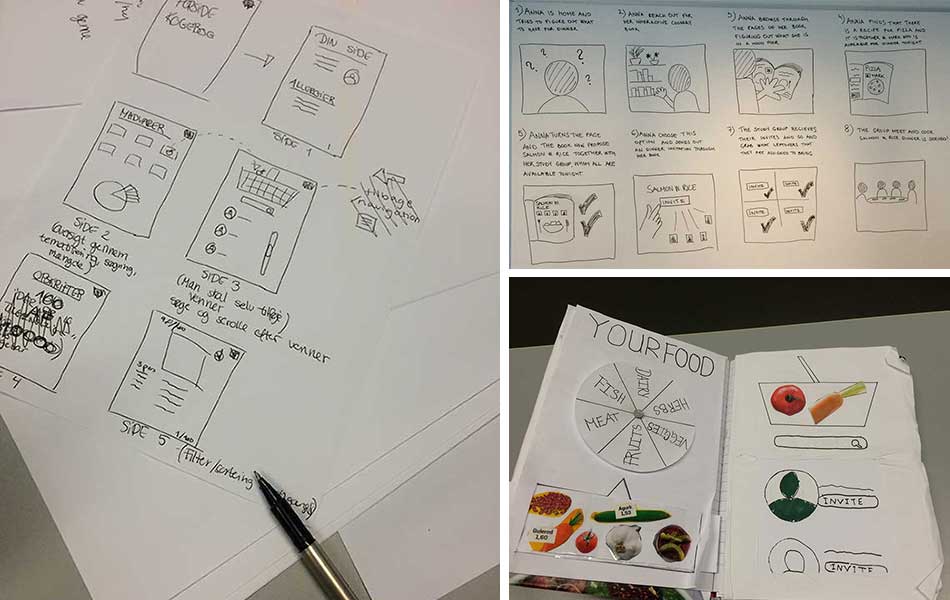 FORSIDE
KOGEBOG
DIN SIDE
ALLERGIER
SIDE 1
MADVARER
SIDE 2
gennem
mængde
SIDE 3
(Man skal selv tilføje
venner
søge og scrolle efter venner
Tilbage
navigation
OPSKRIFTER
100
4
SIDE 5
1/100
(Filter/sortering
1) ANNA IS HOME AND
TRIES TO FIGURE OUT WHAT
TO MAKE FOR DINNER
? ? ? ?
2) ANNA REACH OUT FOR
HER INTERACTIVE COOKING
BOOK
3) ANNA BROWSE THROUGH
THE PAGES OF HER BOOK,
FIGURING OUT WHAT SHE IS
IN A MOOD FOR
4) ANNA FINDS THAT THERE
IS A RECIPE FOR PIZZA AND
IS AVAILABLE FOR DINNER TONIGHT
PIZZA
5) ANNA TURNS THE PAGE
AND THE BOOK NOW PROMISE
SALMON & RICE TOGETHER WITH
HER STUDY GROUP, WHOM ALL ARE
AVAILABLE TONIGHT.
SALMON W.
RICE
6) ANNA CHOOSE THIS
OPTION AND SENDS OUT
AN DINNER INVITATION THROUGH
HER BOOK
SALMON W. RICE
INVITE
7) THE STUDY GROUP RECIEVES
THEIR INVITES AND GO AND
GRAB WHAT LEFTOVERS THAT
THEY ARE ASSIGNED TO BRING
INVITE
INVITE
INVITE
INVITE
8) THE GROUP MEET AND COOK
SALMON & RICE DINNER IS SERVED!
YOUR FOOD
DAIRY
HERBS
VEGGIES
FRUITS
MEAT
FISH
Gulerod
1,60
Agurk
1,53
INVITE
INVITE